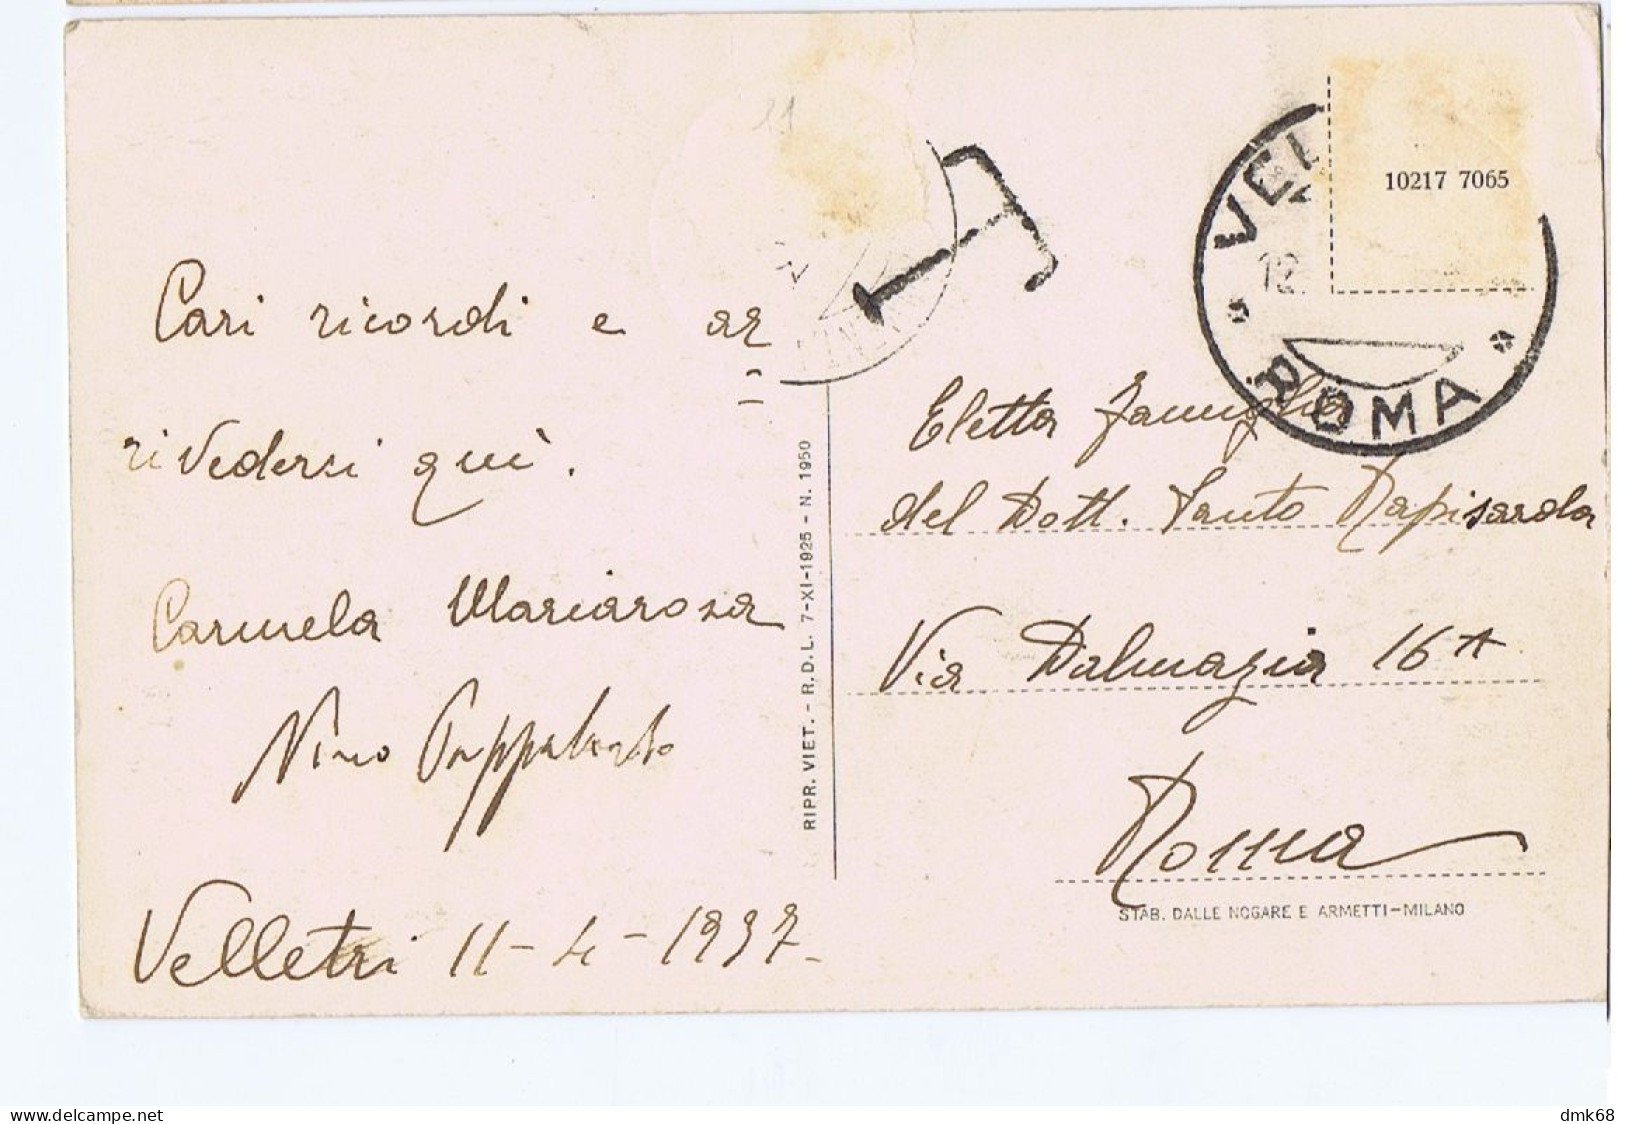 21
Cari ricordi e ar=
rivedersi quì.
Carmela Mariarosa
Nino
Velletri 11-4-1937.
RIPR. VIET. - R.D.L. 7-XI-1925 - N. 1950
T
VEL
12
ROMA
10217 7065
Eletta famiglia
del Dott. Santo Rapisarda
Via Dalmazia 16A
Roma
STAB. DALLE NOGARE E ARMETTI-MILANO
www.delcampe.net
dmk68